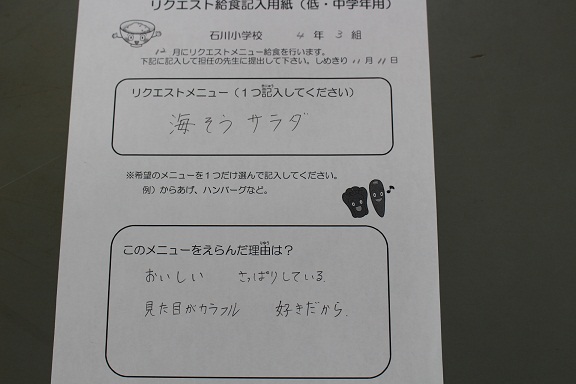 リクエスト給食記入用紙（低・中学年用）
石川小学校 4年3組
12月にリクエストメニュー給食を行います。
下記に記入して担任の先生に提出して下さい。しめきり11月11日
リクエストメニュー（1つ記入してください）
海そうサラダ
※希望のメニューを1つだけ選んで記入してください。
例）からあげ、ハンバーグなど。
このメニューをえらんだ理由は？
おいしい さっぱりしている。
見た目がカラフル 好きだから。